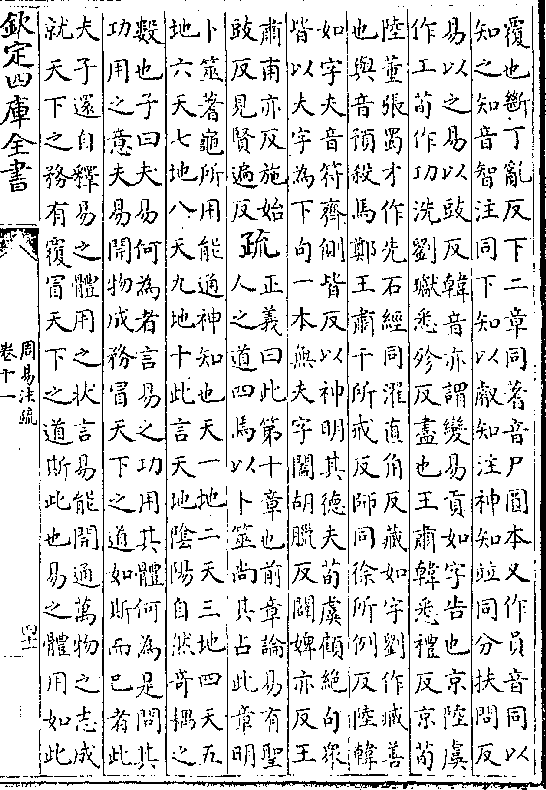 覆也斷丁亂反下二章同蓍音尸圓本又作員音同以
知之知音智注同下知以叡知注神知竝同分扶問反
易以之易以豉反韓音亦謂變易貢如字告也京陸虞
作工荀作功洗劉瓛悉殄反盡也王肅韓悉禮反京荀
陸董張蜀才作先石經同濯直角反藏如字劉作臧善
也與音預殺馬鄭王肅干所戒反師同徐所例反陸韓
如字夫音符齊側皆反以神明其德夫荀虞顧絶句衆
皆以夫字為下句一本無夫字闔胡臘反闢婢亦反王
肅甫亦反施始
豉反見賢遍反
疏
正義曰此第十章也前章論易有聖
人之道四焉以卜筮尚其占此章明
卜筮蓍龜所用能通神知也天一地二天三地四天五
地六天七地八天九地十此言天地陰陽自然奇耦之
數也子曰夫易何為者言易之功用其體何為是問其
功用之意夫易開物成務冒天下之道如斯而已者此
夫子還自釋易之體用之狀言易能開通萬物之志成
就天下之務有覆冒天下之道斯此也易之體用如此
欽定四庫全書
周易注疏
卷十一